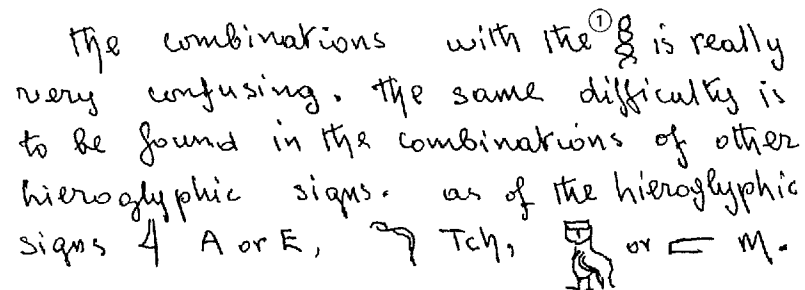 The combinations with the ① 𓎛 is really
very confusing. The same difficulty is
to be found in the combinations of other
hieroglyphic signs. as of the hieroglyphic
signs 𓇋 A or E, Tch, 𓅓 or 𓐝 M.